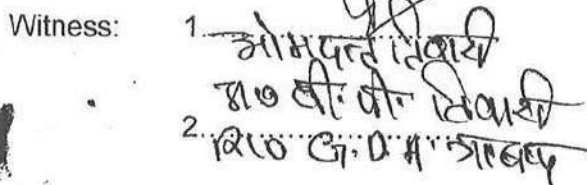 Witness: 1. ओमदत्त तिवारी
S/O बी. पी. तिवारी
2. R/O G.D.A.